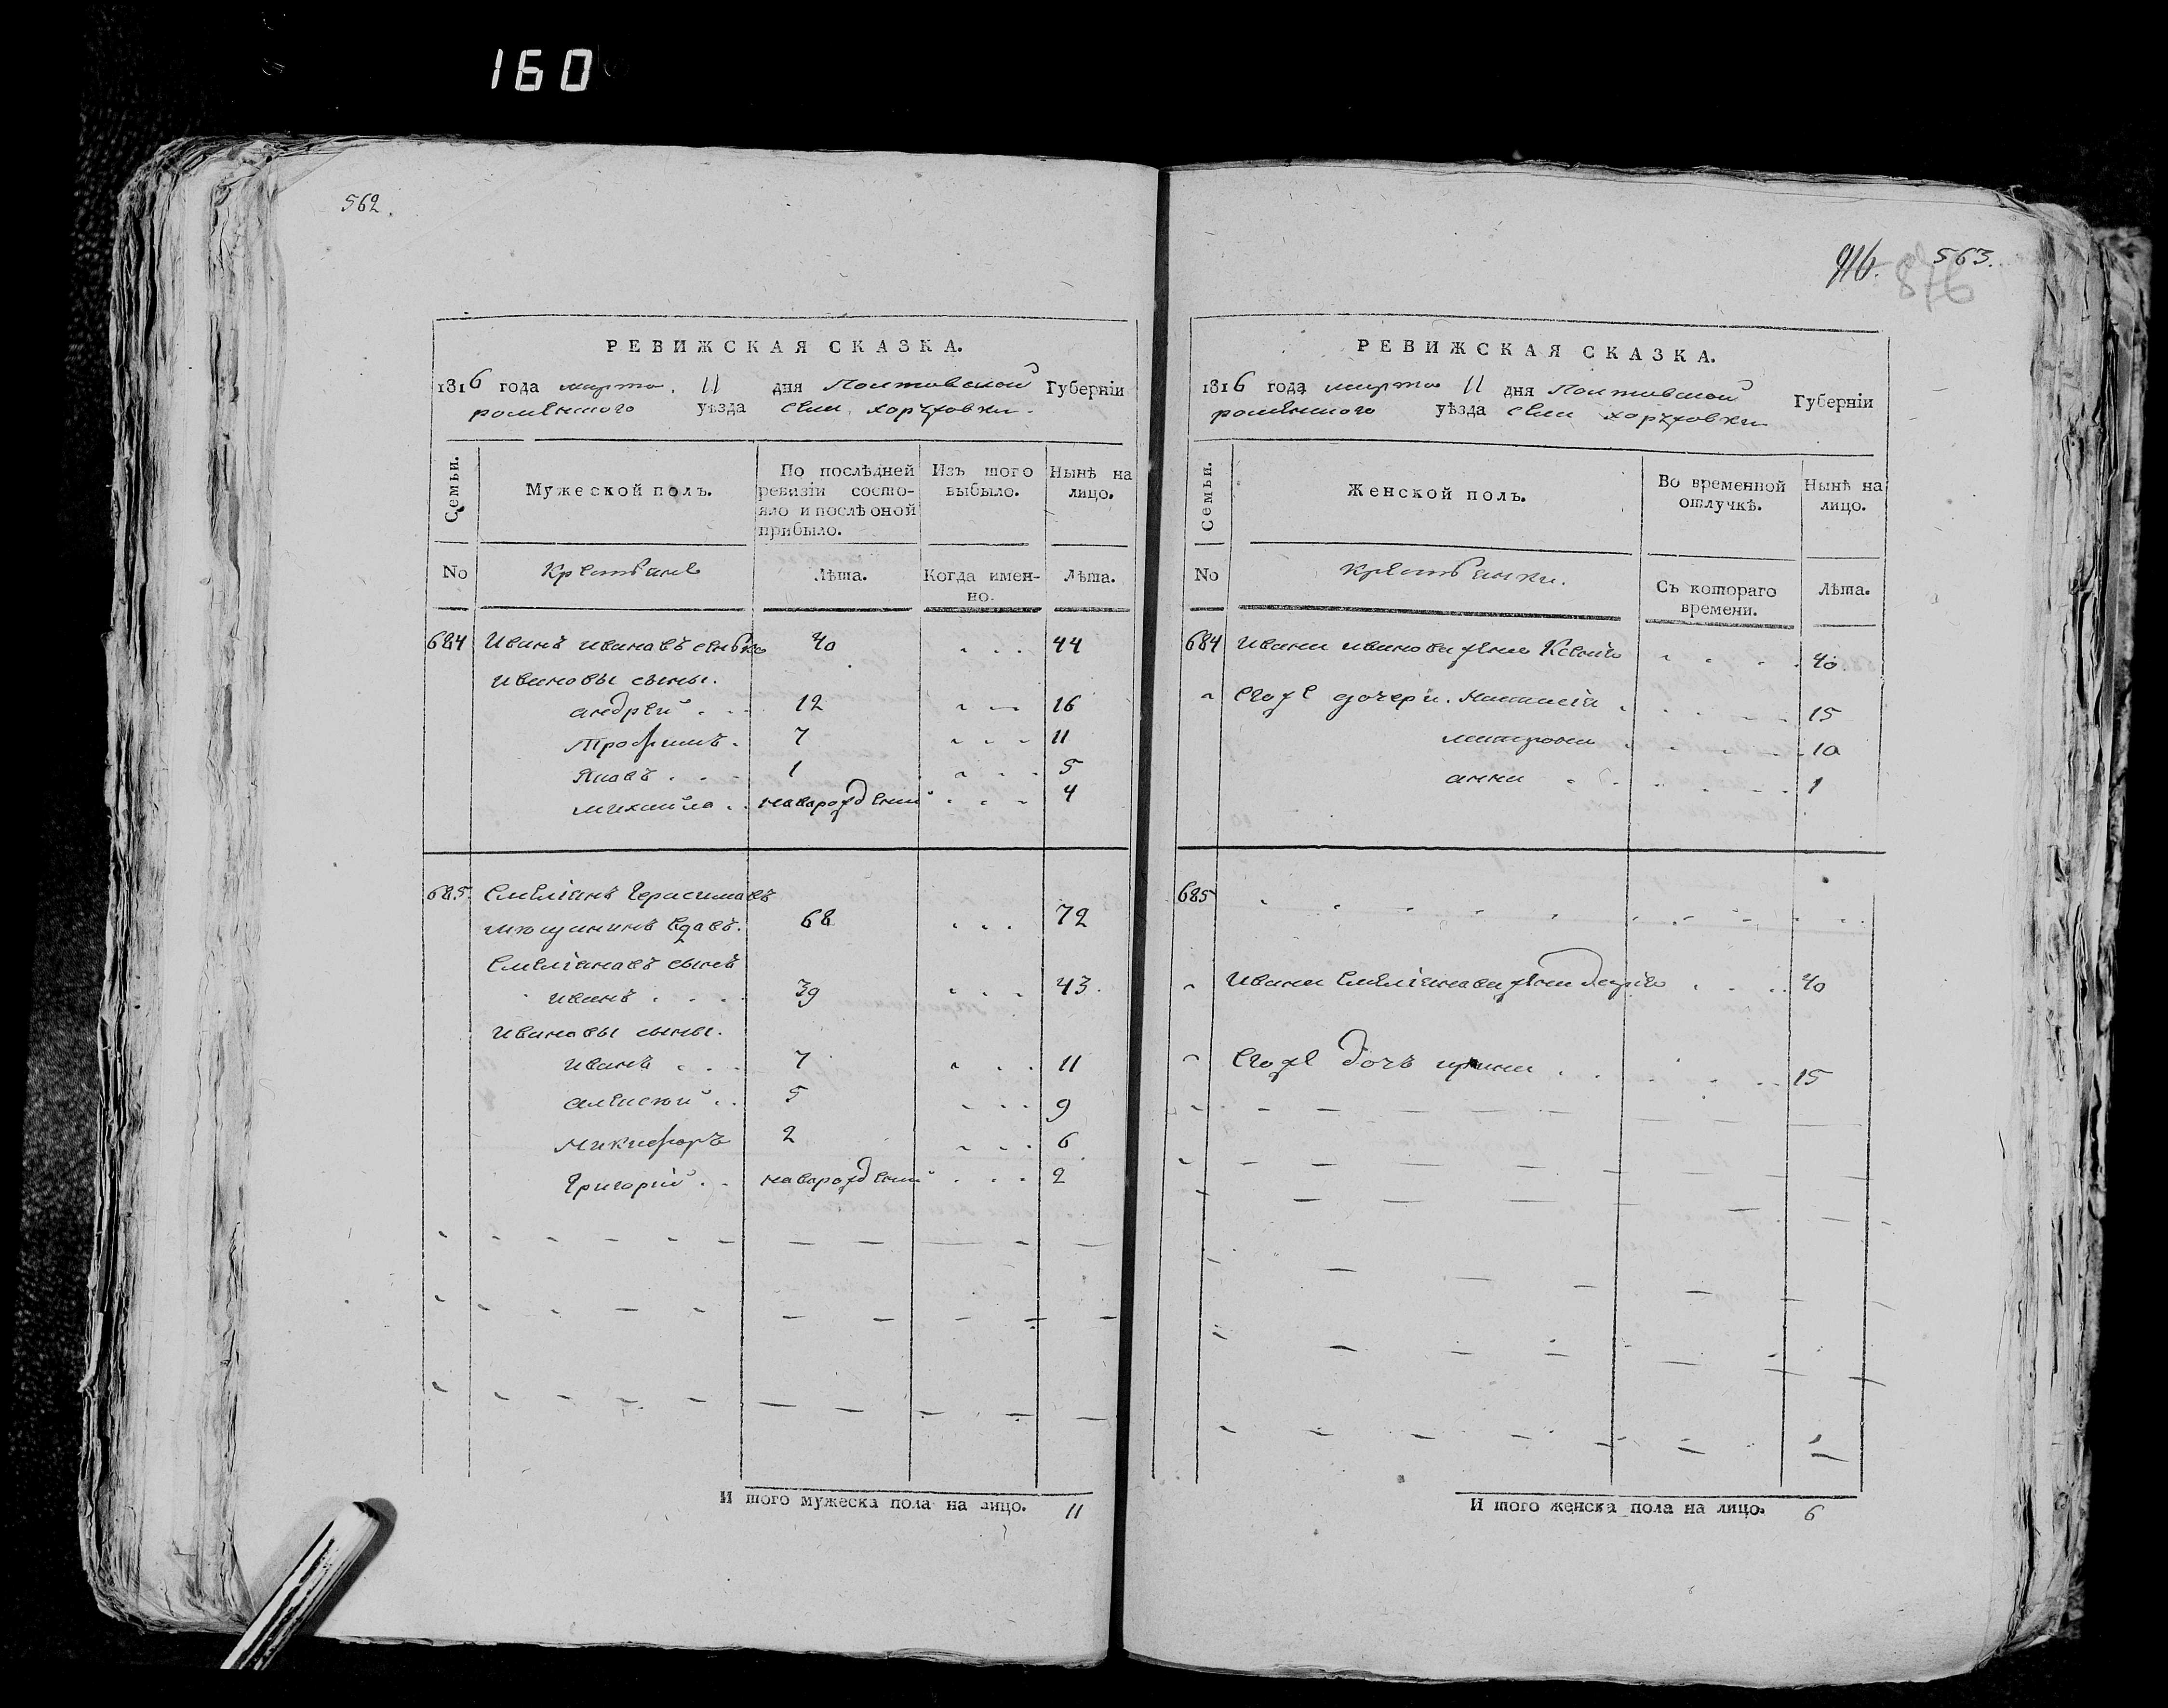 160
562.
РЕВИЖСКАЯ СКАЗКА.
1816 года марта 11 дня Полтавской Губерніи
роменского уѣзда села
Семьи.
Мужеской полъ.
По послѣдней ревизіи состояло и послѣ оной прибыло.
Изъ того выбыло.
Нынѣ на лицо.
No
Крестьяне
Лѣта.
Когда именно.
Лѣта.
684 Иванъ Ивановъ 40 44
Ивановы сыны.
андрей 12 16
Трофимъ. 7 11
Яковъ 1 5
михайла новорожденний 4
685. Емелянъ Герасимовъ
68 72
Емеліановъ сынъ
иванъ 39 43.
Ивановы сыны.
иванъ 7 11
алексій 5 9
Никифоръ 2 6
Григорій новорожденний 2
И того мужеска пола на лицо. 11
916. 563.
876
РЕВИЖСКАЯ СКАЗКА.
1816 года марта 11 дня Полтавской Губерніи
роменского уѣзда села
Семьи.
Женской полъ.
Во временной отлучкѣ.
Нынѣ на лицо.
No
крестьянки.
Съ котораго времени.
Лѣта.
684 Ивана иванова жена Ксенія 40
Егоже дочери. Наталія 15
10
анна 1
685
Ивана Емеліанова жена Марія 40
Егоже дочь ирина 15
И того женска пола на лицо. 6